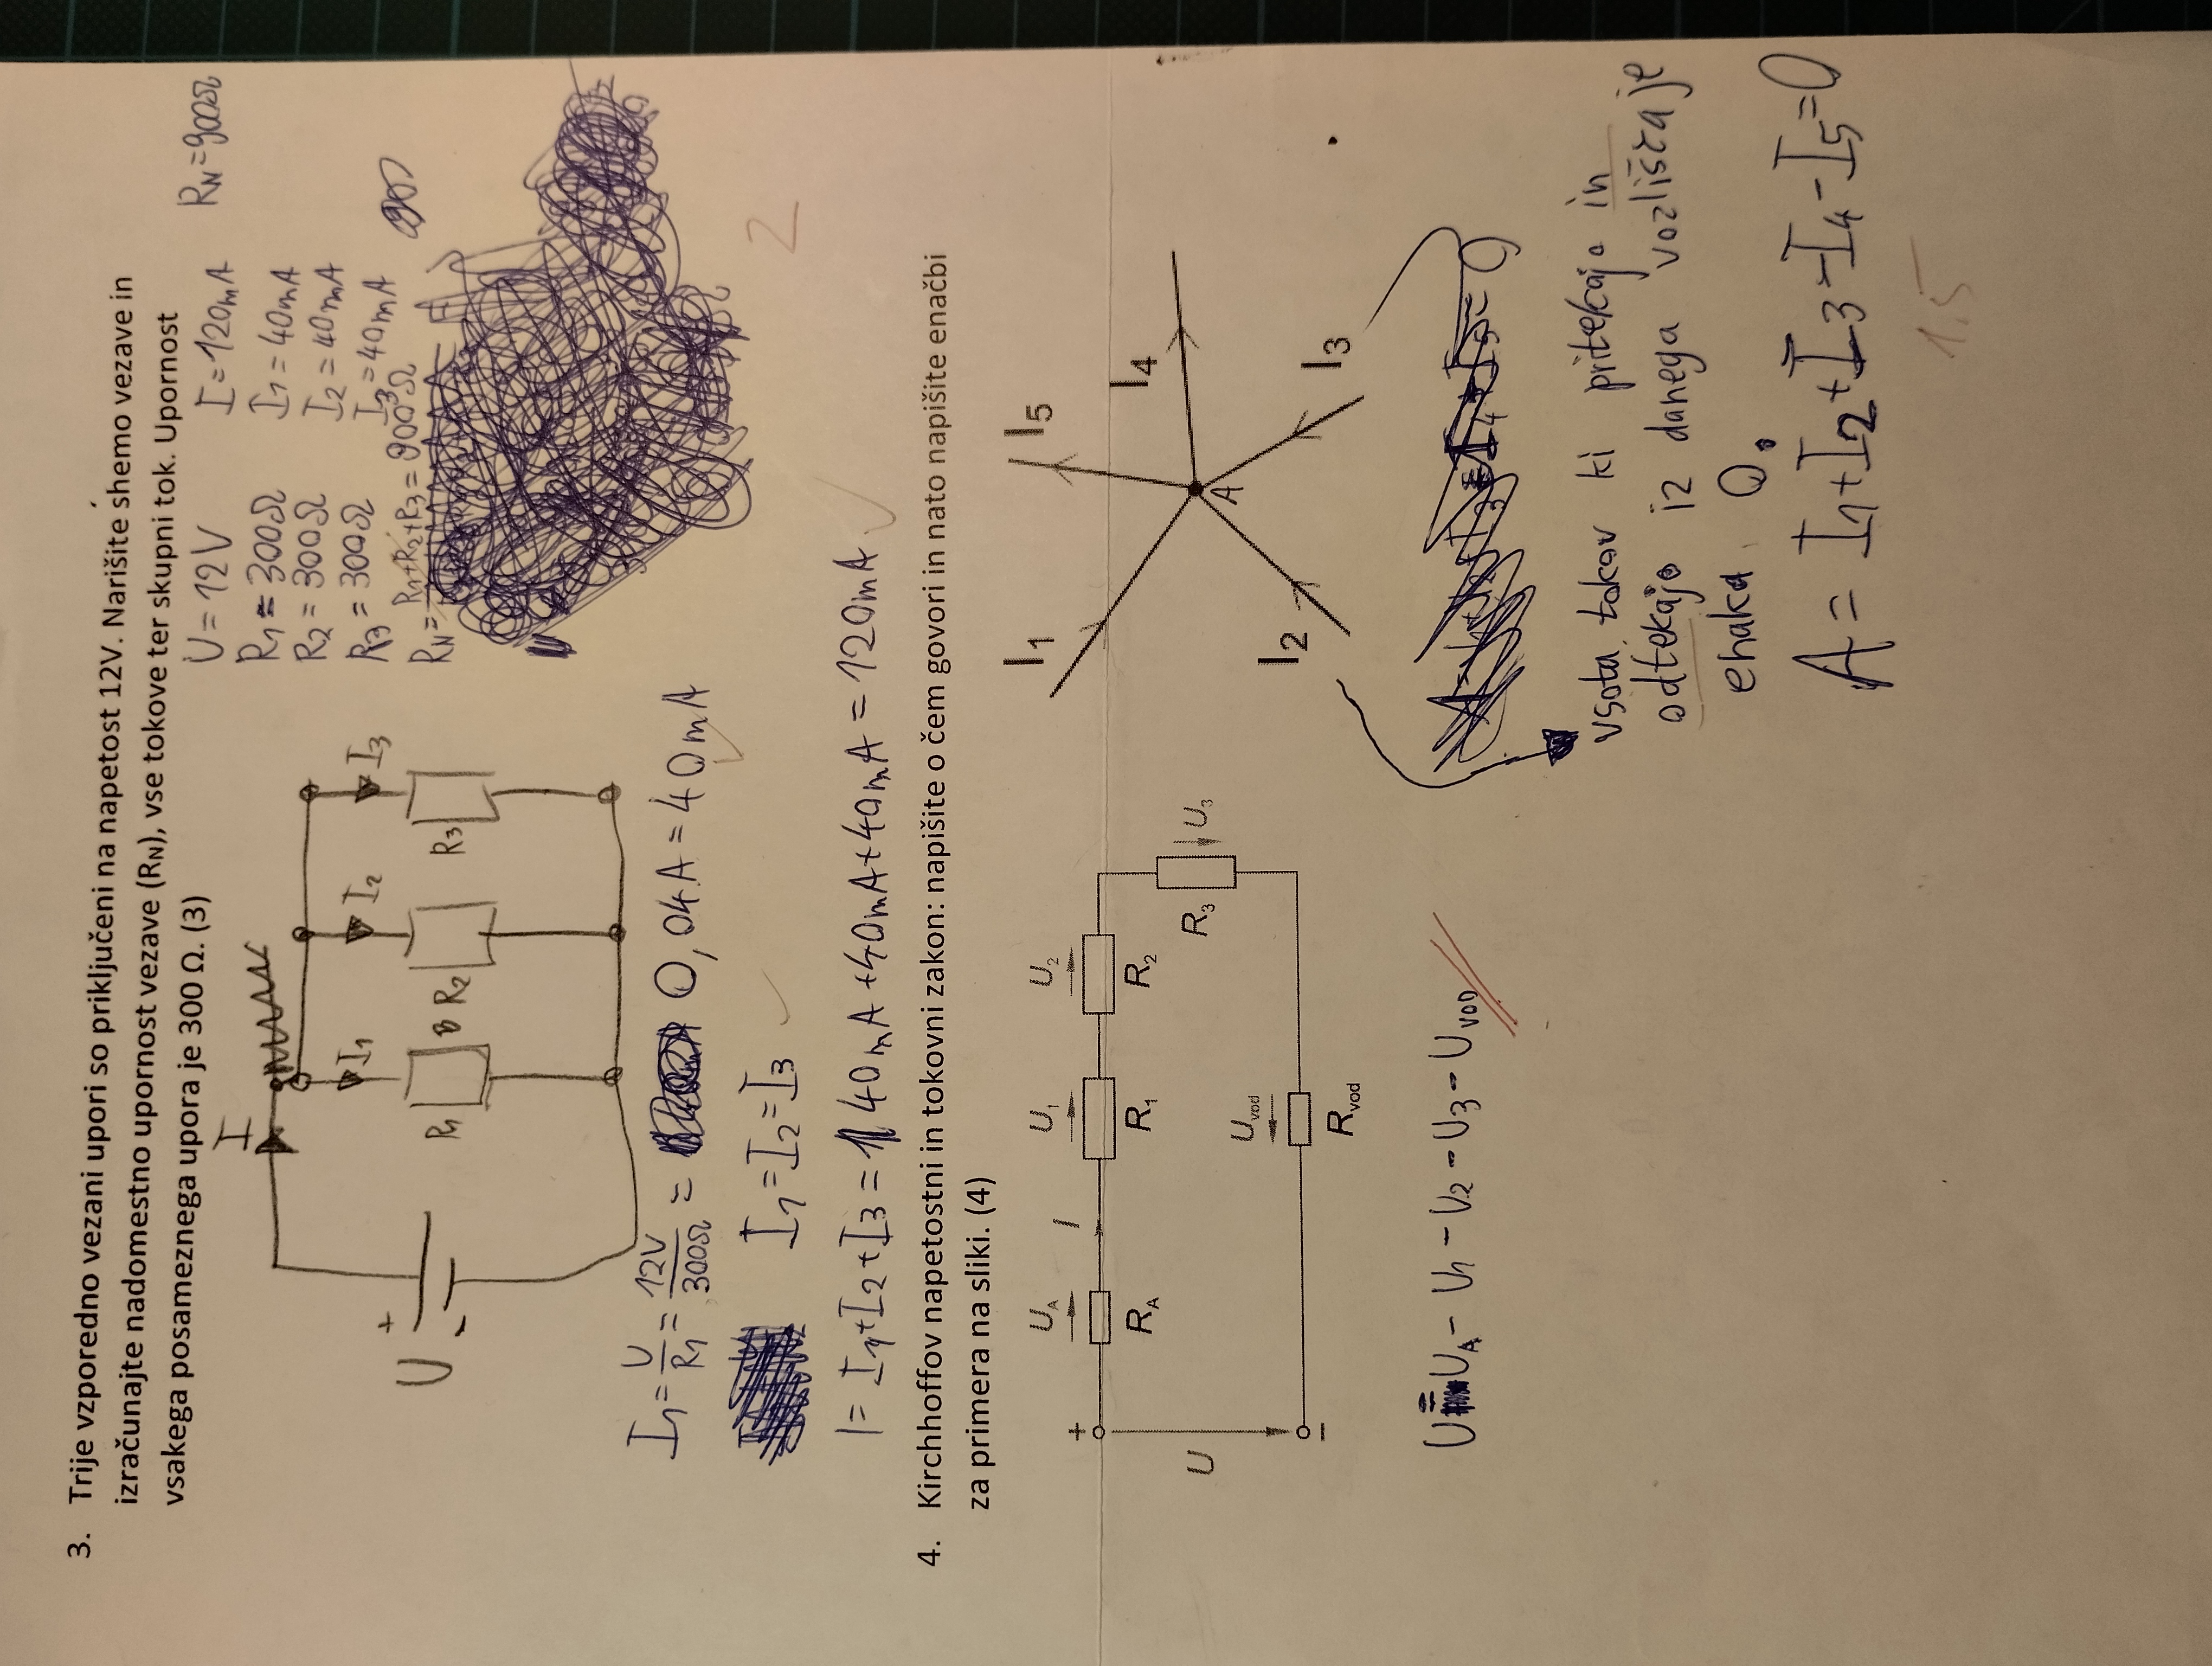 3. Trije vzporedno vezani upori so priključeni na napetost 12V. Narišite shemo vezave in
izračunajte nadomestno upornost vezave (RN), vse tokove ter skupni tok. Upornost
vsakega posameznega upora je 300 Ω. (3)
U = 12V
I = 120mA
RN = 900Ω
R1 = 300Ω
I1 = 40mA
R2 = 300Ω
I2 = 40mA
R3 = 300Ω
I3 = 40mA
RN = R1+R2+R3 = 900Ω
I
I1
I2
I3
+
U
-
R1
B
R2
R3
I1 = U/R1 = 12V/300Ω = 0,04A = 40mA
I1 = I2 = I3
2
I = I1+I2+I3 = 40mA+40mA+40mA = 120mA
4. Kirchhoffov napetostni in tokovni zakon: napišite o čem govori in nato napišite enačbi
za primera na sliki. (4)
UA
I
U1
U2
+
RA
R1
R2
U
R3
U3
Uvod
−
Rvod
I1
I5
I4
A
I2
I3
U = UA - U1 - U2 - U3 - UVOD
vsota tokov ki pritekajo in
odtekajo iz danega vozlišča je
enaka 0.
A = I1+I2+I3-I4-I5=0
1,5